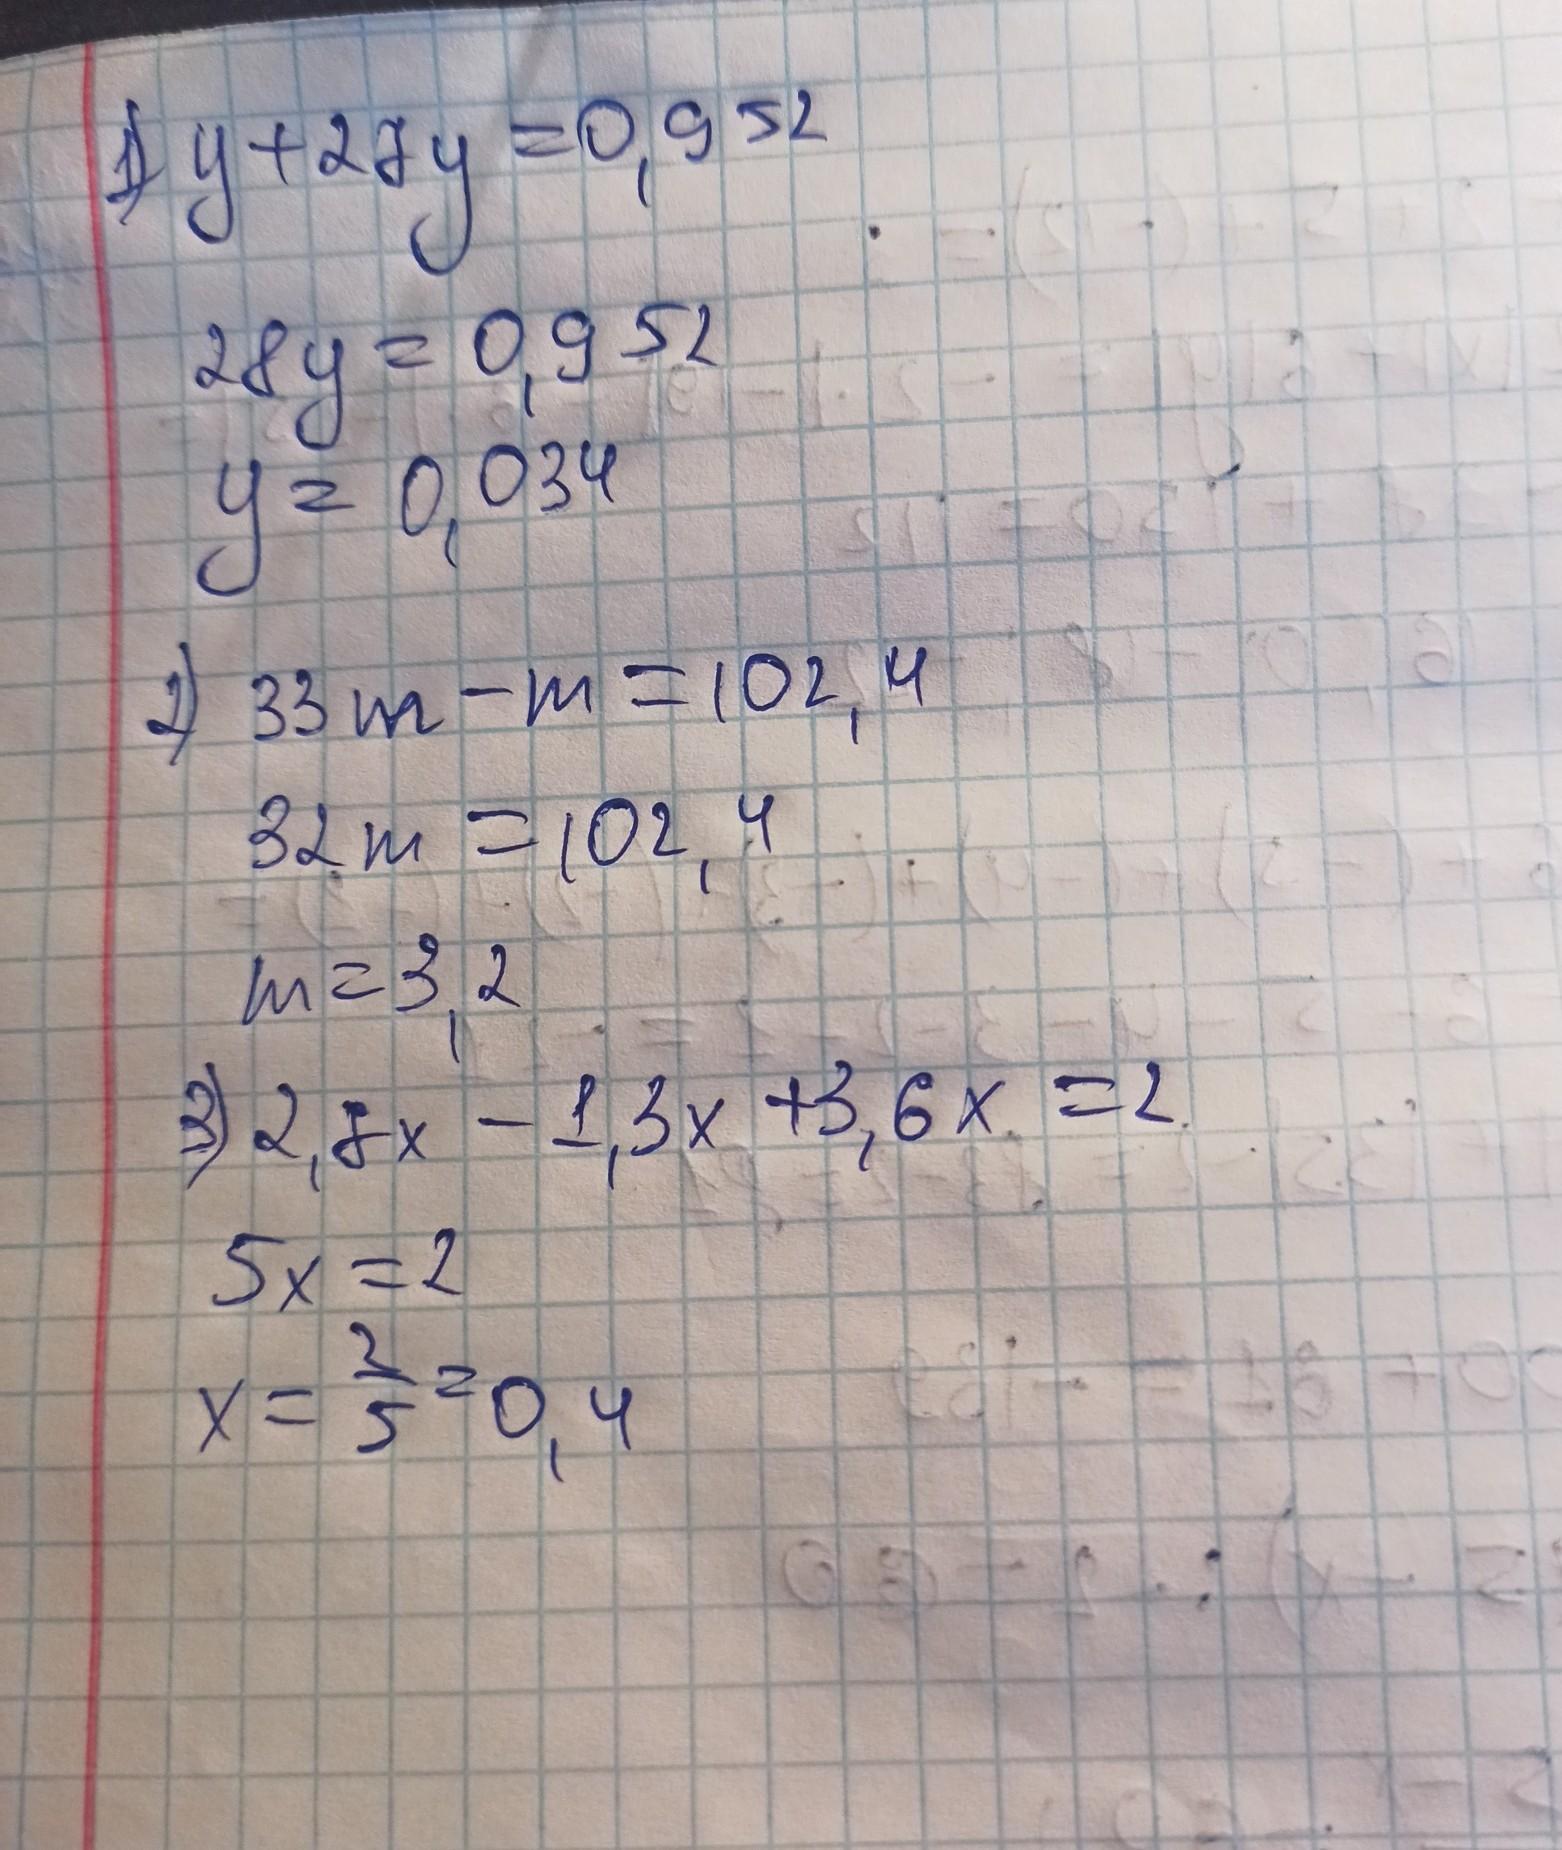 1) y+27y=0,952
28y=0,952
y=0,034
2) 33m-m=102,4
32m=102,4
m=3,2
3) 2,7x-1,3x+3,6x=2
5x=2
x=2/5=0,4